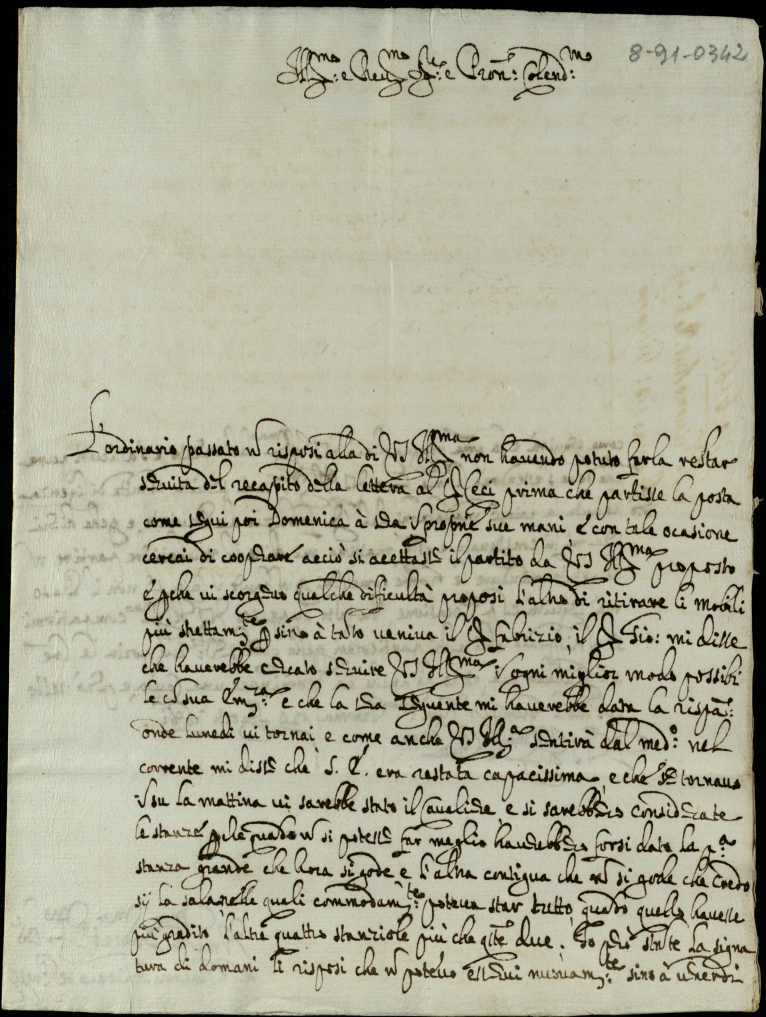 8-91-0342
Ill.mo e Rev.mo Sig.re e Pron: Colend.mo
L'ordinario passato n risposi alla di VS Ill.ma non havendo potuto farla restar
servita del recapito della lettera al Sig Ceci prima che partisse la posta
come seguì poi Domenica à sera proprie sue mani e con tale ocasione
cercai di cooperare acciò si acettasse il partito da VS Ill.ma proposto
e perche vi scorgevo qualche difficultà proposi l'altro di ritirare li mobili
più strettam.te sino à tanto veniva il Sig Fabrizio, il Sig Gio: mi disse
che haverebbe cercato servire VS Ill.ma ogni miglior modo possibi
le sua e che la sera seguente mi haverebbe data la rispa:
onde lunedi vi tornai e come anche VS Ill.ma sentirà dal med.o nel
corrente mi disse che S. E. era restata capacissima, e che se tornavo
su la mattina vi sarebbe stato il Cavaliere, e si sarebbero considerate
le stanze quando n si potesse far meglio haverebbero forsi data la p.a
stanza grande che hora si gode e l'altra contigua che n si gode che credo
sij la sala nelle quali commodam.te poteva star tutto, quando quello havesse
più gradito l'altre quattro stanziole più che q.te due. Io però stante la signa
tura di domani li risposi che n potevo esservi nuovam.te sino à venerdi